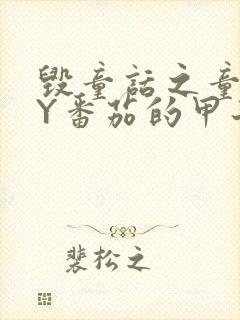 毁童话之童
Y番茄的甲
裴松之